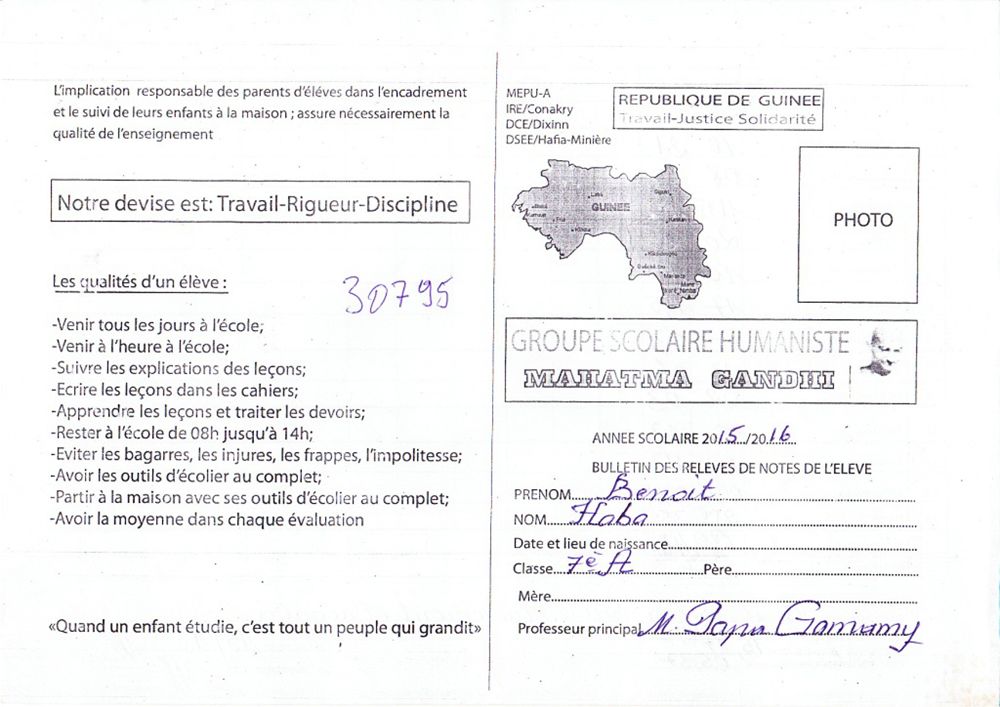 L'implication responsable des parents d'éléves dans l'encadrement
et le suivi de leurs enfants à la maison ; assure nécessairement la
qualité de l'enseignement
Notre devise est: Travail-Rigueur-Discipline
Les qualités d'un élève :
30795
-Venir tous les jours à l'école;
-Venir à l'heure à l'école;
-Suivre les explications des leçons;
-Ecrire les leçons dans les cahiers;
-Apprendre les leçons et traiter les devoirs;
-Rester à l'école de 08h jusqu'à 14h;
-Eviter les bagarres, les injures, les frappes, l'impolitesse;
-Avoir les outils d'écolier au complet;
-Partir à la maison avec ses outils d'écolier au complet;
-Avoir la moyenne dans chaque évaluation
«Quand un enfant étudie, c'est tout un peuple qui grandit»
MEPU-A
IRE/Conakry
DCE/Dixinn
DSEE/Hafia-Minière
REPUBLIQUE DE GUINEE
Travail-Justice Solidarité
GUINEE
PHOTO
GROUPE SCOLAIRE HUMANISTE
MAHATMA GANDHI
ANNEE SCOLAIRE 2015/2016
BULLETIN DES RELEVES DE NOTES DE L'ELEVE
PRENOM Benoit
NOM Haba
Date et lieu de naissance
Classe 7è A Père
Mère
Professeur principal M. Papa Gamamy